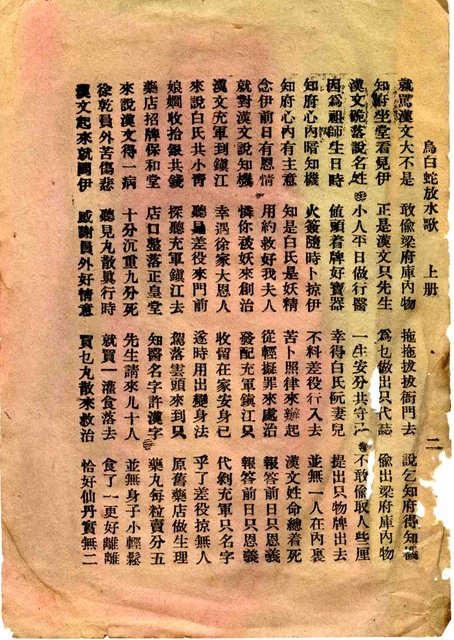 烏白蛇放水歌 上册 二
就罵漢文大不是 敢偷梁府庫內物 拖拖拔拔衙門去 說乞知府得知機
知府坐堂看見伊 正是漢文只先生 爲乜做出只代誌 偷出梁府庫內物
漢文跪落說名姓 小人平日做行醫 一生安分共守己 不敢偷取人些厘
因爲祖師生日時 値頭着牌好寶器 幸得白氏阮妻兒 提出只物牌出去
知府心內暗知機 火簽隨時卜掠伊 不料差役行入去 並無一人在內裏
知府心內有主意 知是白氏是妖精 苦卜照律來辦起 漢文姓命總着死
念伊前日有恩情 用約救好我夫人 從輕擬罪來處治 報答前日只恩義
就對漢文說知機 憐你被妖來創治 發配充軍鎮江只 報答前日只恩義
漢文充軍到鎮江 幸遇徐家大恩人 收留在家安身已 代剝充軍只名字
來說白氏共小青 聽見差役來門前 遂時用出變身法 乎了差役掠無人
娘嫺收拾銀共錢 探聽充軍鎮江去 駕落雲頭來到只 原舊藥店做生理
藥店招牌保和堂 店口整落正皇堂 知醫名字許漢字 藥丸每粒賣分五
來說漢文得一病 十分沉重九分死 先生請來几十人 並無身子小輕鬆
徐乾員外苦傷悲 聽見丸散眞行時 就買一食落去 食了一更好離離
漢文起來就伊 感謝員外好情意 買乜丸散來救治 恰好仙丹實無二